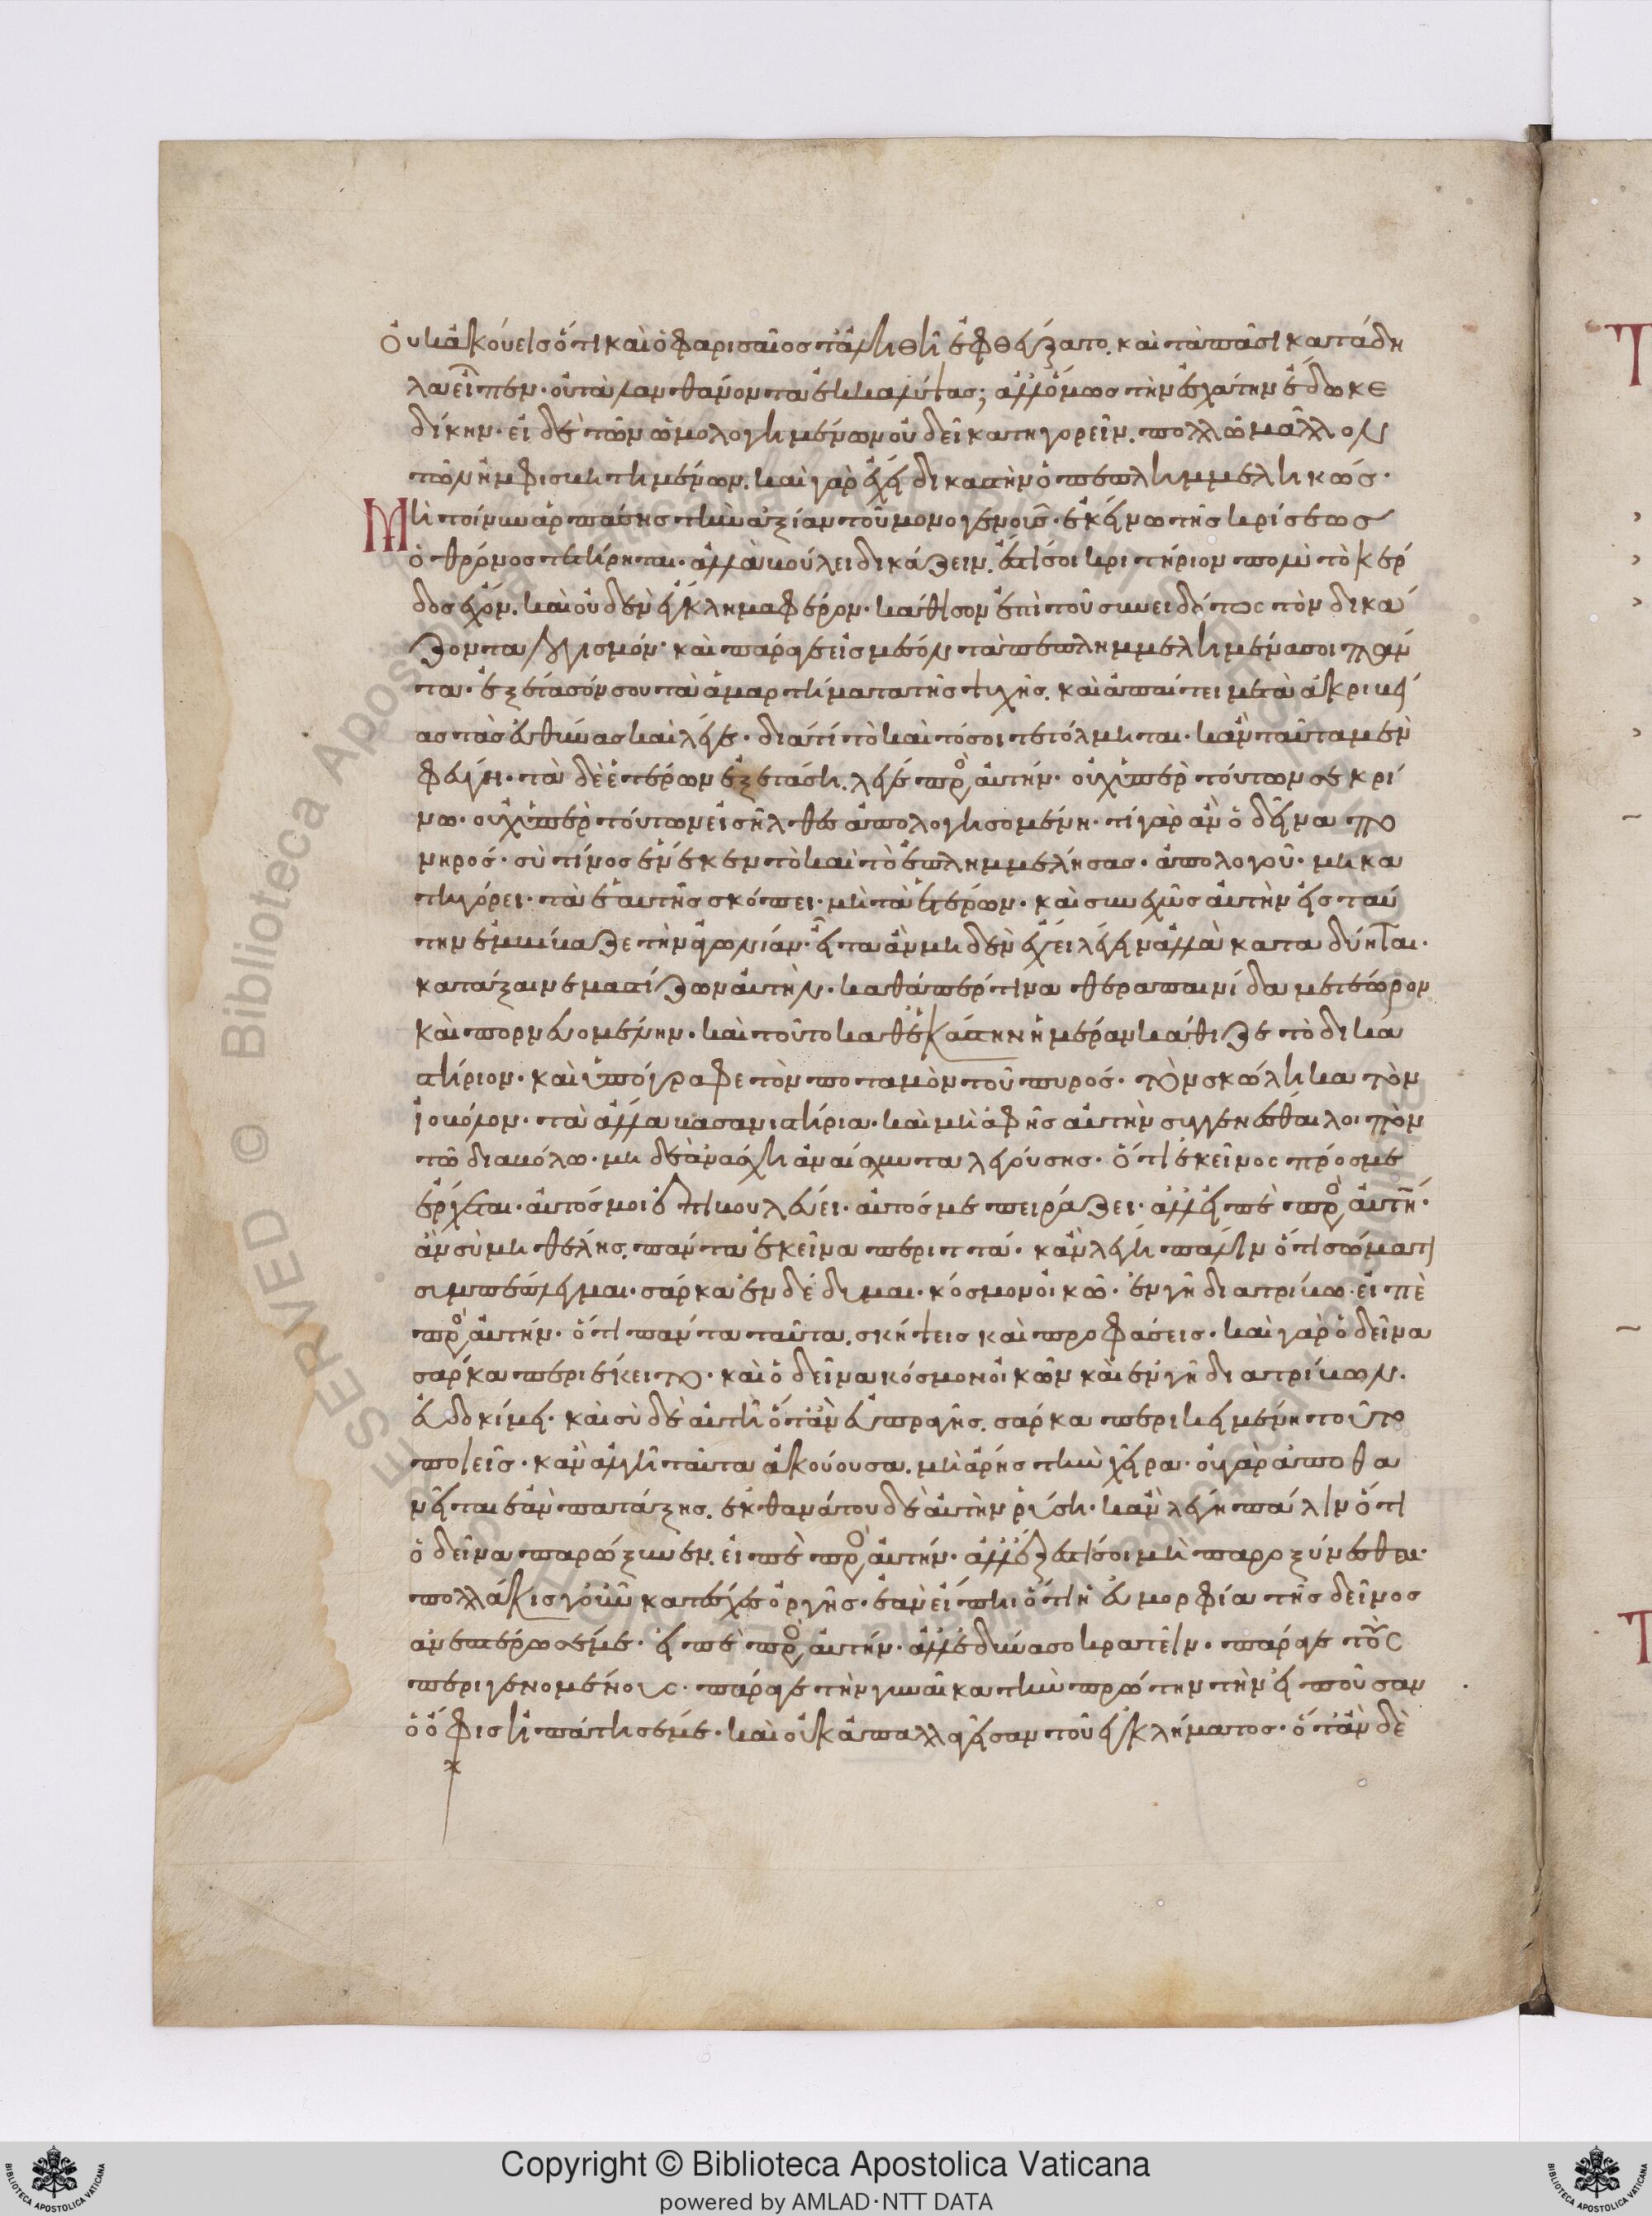 Οὐκ ἀκούεις ὅτι καὶ ὁ φαρισαῖος τἀληθῆ ἐφθέγξατο. καὶ τὰ πᾶσι κατάδη
λα εἶπεν· οὐ τὰ λανθάνοντα ἐκκαλύψας; ἀλλ' ὅμως τὴν ἐσχάτην ἔδωκε
δίκην· εἰ δὲ τῶν ὡμολογημένων οὐ δεῖ κατηγορεῖν. πολλῷ μᾶλλον
τῶν ἠμφισβητημένων. καὶ γὰρ ἔχει δικαστὴν ὁ πεπλημμεληκώς·
Μὴ τοίνυν ἁρπάσῃς τὴν ἀξίαν τοῦ μονογενοῦς· ἐκείνῳ τῆς κρίσεως
ὁ θρόνος τετήρηται· ἀλλὰ βούλει δικάζειν. ἔστι σοι κριτήριον πολὺ τὸ κέρ
δος ἔχον. καὶ οὐδὲν ἔγκλημα φέρον· κάθισον ἐπὶ τοῦ συνειδότος τὸν δικά
ζοντα λογισμόν· καὶ πάραγε εἰς μέσον τὰ πεπλημμελημένα σοι πάν
τα· ἐξέτασόν σου τὰ ἁμαρτήματα τῆς ψυχῆς. καὶ ἀπαίτει μετὰ ἀκριβεί
ας τὰς εὐθύνας καὶ λέγε· διατί τὸ καὶ τό σοι τετόλμηται· κἂν ταῦτα μὲν
φεύγῃ· τὰ δὲ ἑτέρων ἐξετάσῃ. λέγε πρὸς αὐτήν· οὐχ ὑπὲρ τούτων σε κρί
νω· οὐχ ὑπὲρ τούτων εἰσῆλθες ἀπολογησομένη· τί γὰρ ἂν ὁ δεῖνα πο
νηρός· σὺ τίνος ἕνεκεν τὸ καὶ τὸ ἐπλημμέλησας· ἀπολογοῦ· μὴ κα
τηγόρει· τὰ ἑαυτῆς σκόπει· μὴ τὰ ἑτέρων· καὶ συνεχῶς αὐτὴν εἰς ταύ
την ἐμβίβαζε τὴν ἀγωνίαν· εἶτα ἂν μηδὲν ἔχει λέγειν ἀλλὰ καταδύηται·
κατάξαινε μαστίζων αὐτὴν· καθάπερ τινὰ θεραπαινίδα μετέωρον
καὶ πορνευομένην· καὶ τοῦτο καθ' ἑκάστην ἡμέραν κάθιζε τὸ δικα
στήριον· καὶ ὑπόγραφε τὸν ποταμὸν τοῦ πυρός· τὸν σκώληκα τὸν
ἰοβόλον· τὰ ἄλλα βασανιστήρια· καὶ μὴ ἀφῇς αὐτὴν συγγενέσθαι λοιπὸν
τῷ διαβόλῳ· μηδὲ ἀνάσχῃ ἀναίσχυντα λεγούσης· ὅτι ἐκεῖνος πρός με
ἔρχεται· αὐτός μοι ἐπιβουλεύει· αὐτός με πειράζει· ἀλλ' εἰπὲ πρὸς αὐτήν·
ἂν σὺ μὴ θέλῃς. πάντα ἐκεῖνα περιττά· κἂν λέγῃ πάλιν ὅτι σώματι
συμπέπλεγμαι· σάρκα ἐνδέδυμαι· κόσμον οἰκῶ· ἐν γῇ διατρίβω· εἰπὲ
πρὸς αὐτήν· ὅτι πάντα ταῦτα. σκήψεις καὶ προφάσεις· καὶ γὰρ ὁ δεῖνα
σάρκα περιέκειτο· καὶ ὁ δεῖνα κόσμον οἰκῶν καὶ ἐν γῇ διατρίβων.
εὐδοκίμει· καὶ σὺ δὲ αὐτὴ ὅταν εὖ πράγῃς. σάρκα περικειμένη τοῦτο
ποιεῖς· κἂν ἀλγῇ ταῦτα ἀκούουσα. μὴ ἄρῃς τὴν χεῖρα· οὐ γὰρ ἀποθα
νεῖται ἐὰν πατάξῃς. ἐκ θανάτου δὲ αὐτὴν ῥύσῃ· κἂν λέγῃ πάλιν ὅτι
ὁ δεῖνα παρώξυνεν. εἰπὲ πρὸς αὐτήν· ἀλλ' ἔξεστί σοι μὴ παροξύνεσθαι·
πολλάκις γοῦν κατέσχες ὀργῆς· ἐὰν εἴπῃ ὅτι ἡ εὐμορφία τῆς δεῖνος
ἀνεπτέρωσέ με· εἰπὲ πρὸς αὐτήν· ἀλλ' ἐδύνασο κρατεῖν· πάραγε τοὺς
περιγενομένους· πάραγε τὴν γυναῖκα τὴν πρώτην τὴν εἰποῦσαν
ὁ ὄφις ἠπάτησέ με· καὶ οὐκ ἀπαλλαγεῖσαν τοῦ ἐγκλήματος· ὅταν δὲ
Copyright © Biblioteca Apostolica Vaticana
powered by AMLAD·NTT DATA